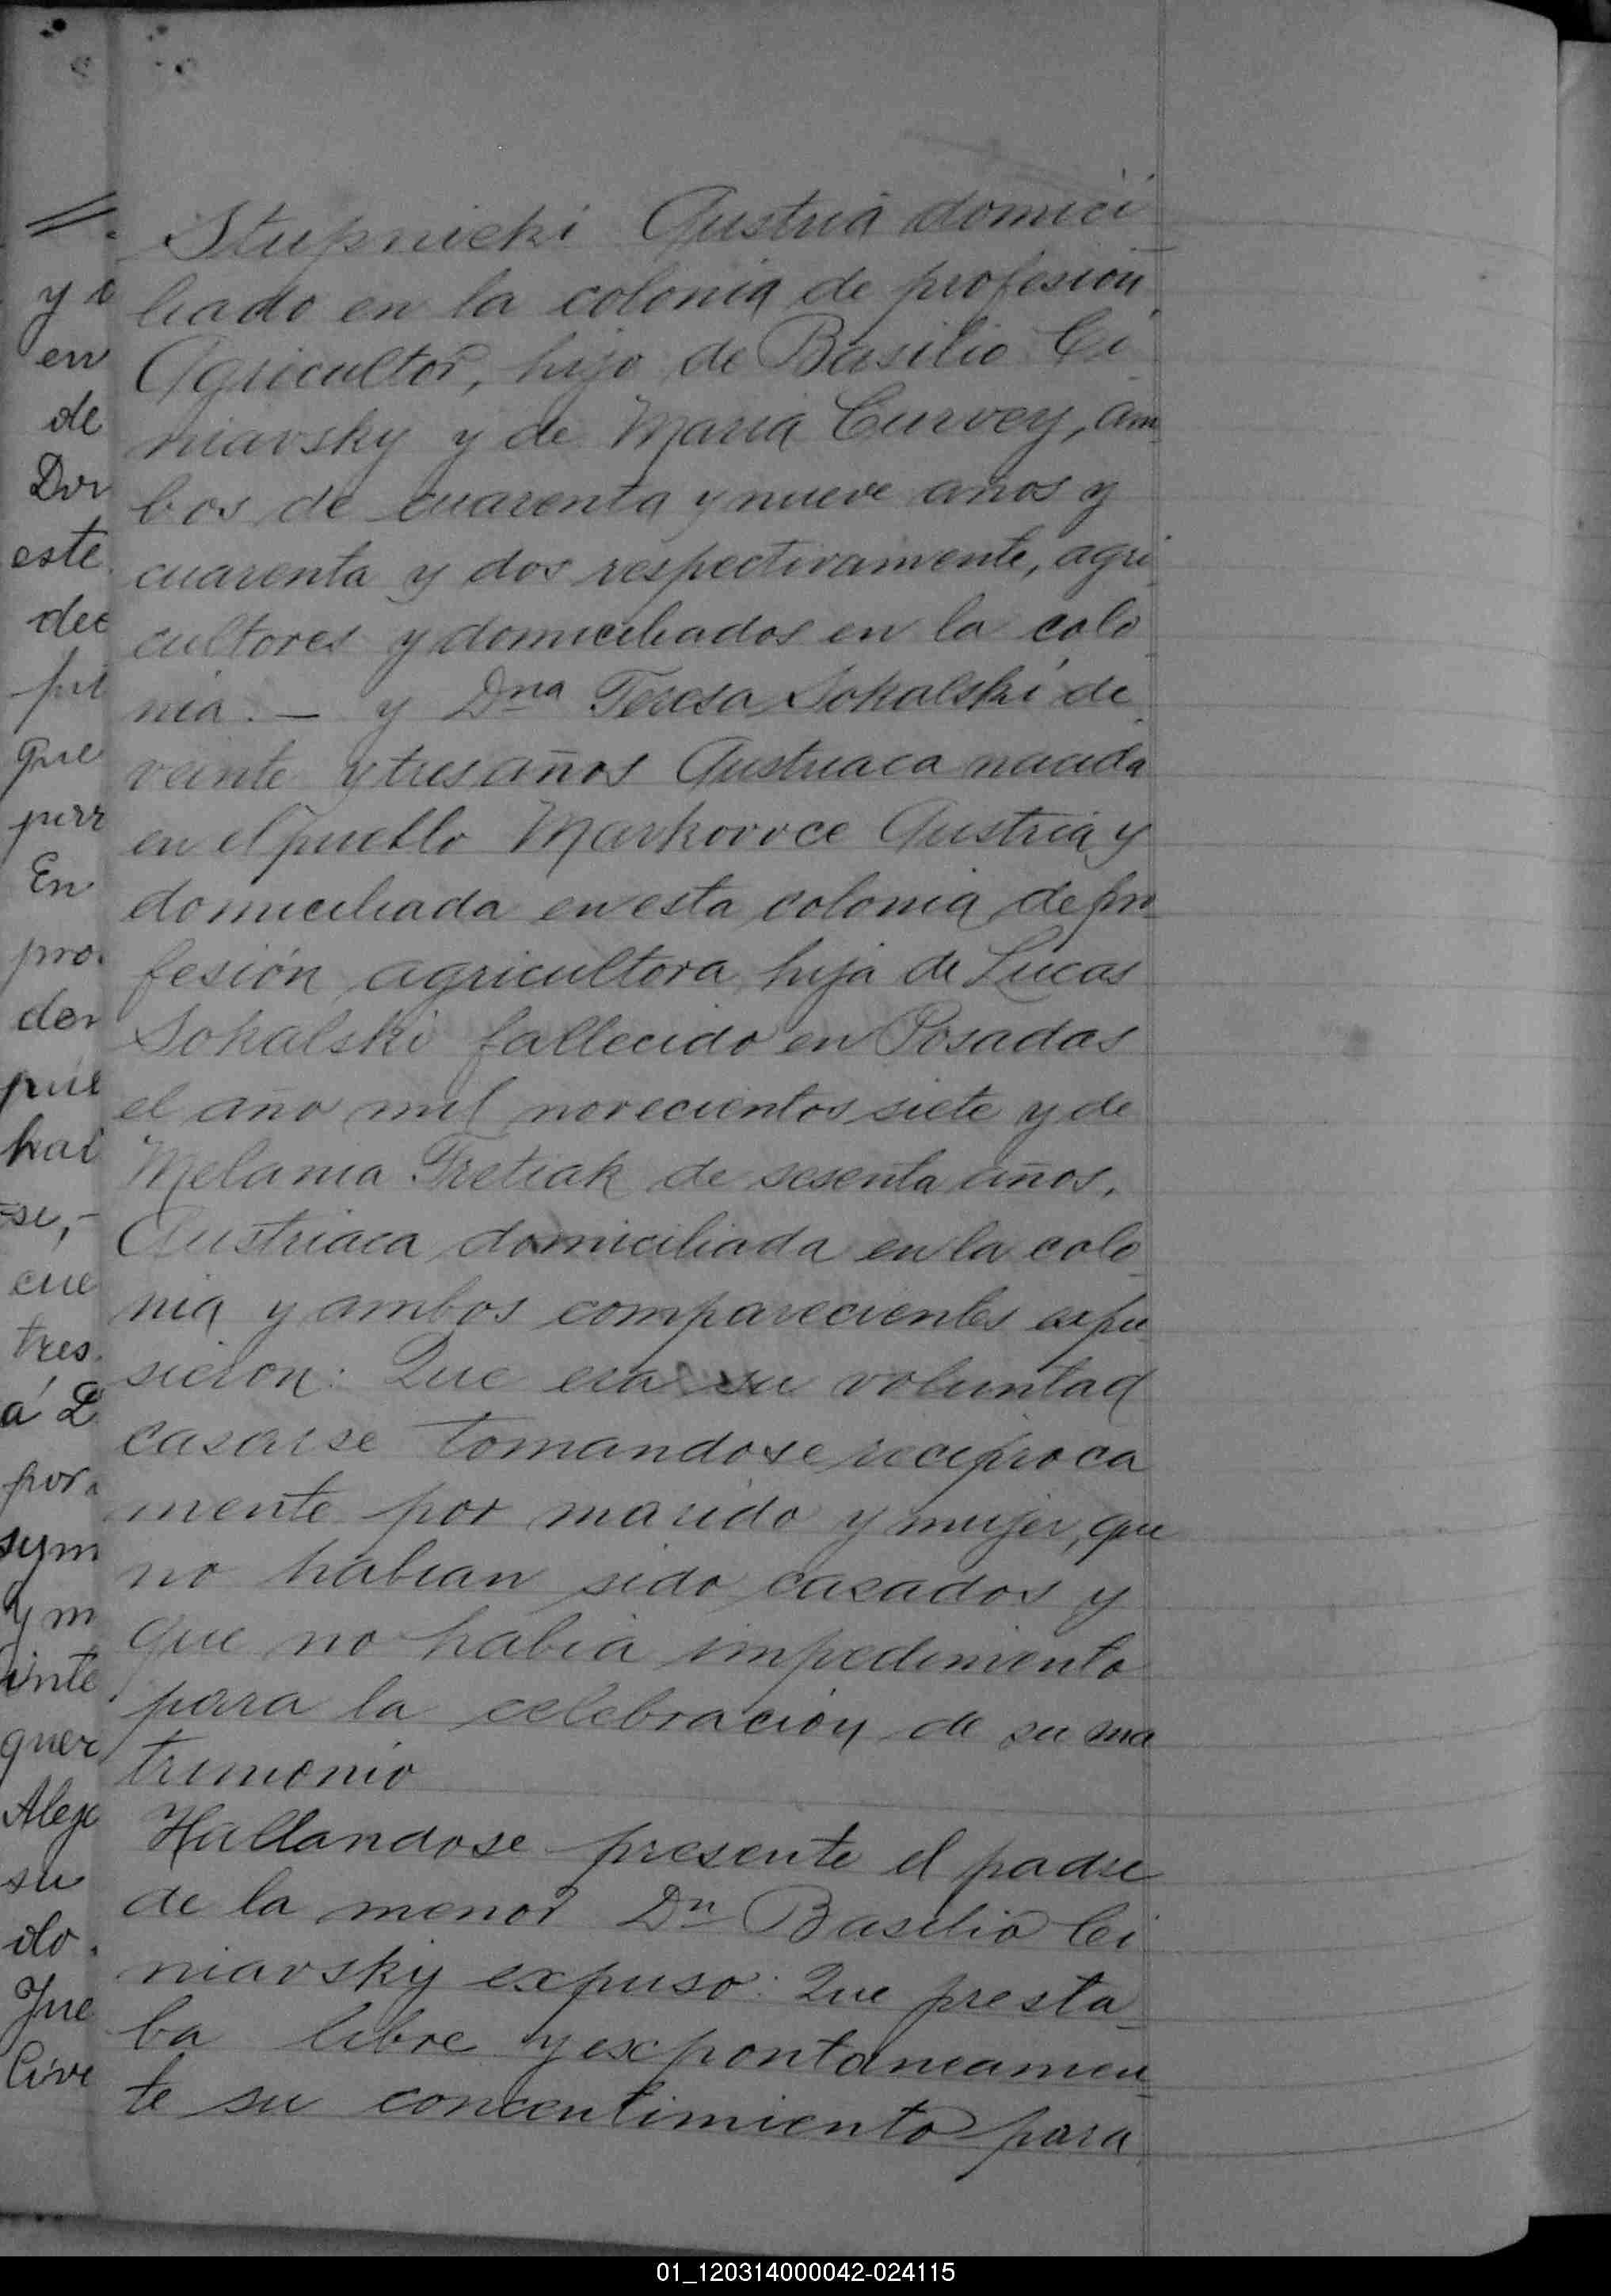 Stupnicki Austria domici
liado en la colonia de profesión
Agricultor, hijo de Basilio Ci
niavsky y de Maria Curvey, am
bos de cuarenta y nueve años y
cuarenta y dos respectivamente, agri
cultores y domiciliados en la colo
nia. — y Dna Teresa Sokalski de
veinte y tres años Austriaca nacida
en el pueblo Markovoce Austria y
domiciliada en esta colonia de pro
fesión agricultora hija de Lucas
Sokalski fallecido en Posadas
el año mil novecientos siete y de
Melania Tretiak de sesenta años,
Austriaca domiciliada en la colo
nia y ambos comparecientes expu
sieron: Que era su voluntad
casarse tomandose reciproca
mente por marido y mujer, que
no habian sido casados y
que no habia impedimento
para la celebración de su ma
trimonio
Hallandose presente el padre
de la menor Dn Basilio Ci
niavsky expuso: Que presta
ba libre y expontaneamen
te su concentimiento para
01_120314000042-024115